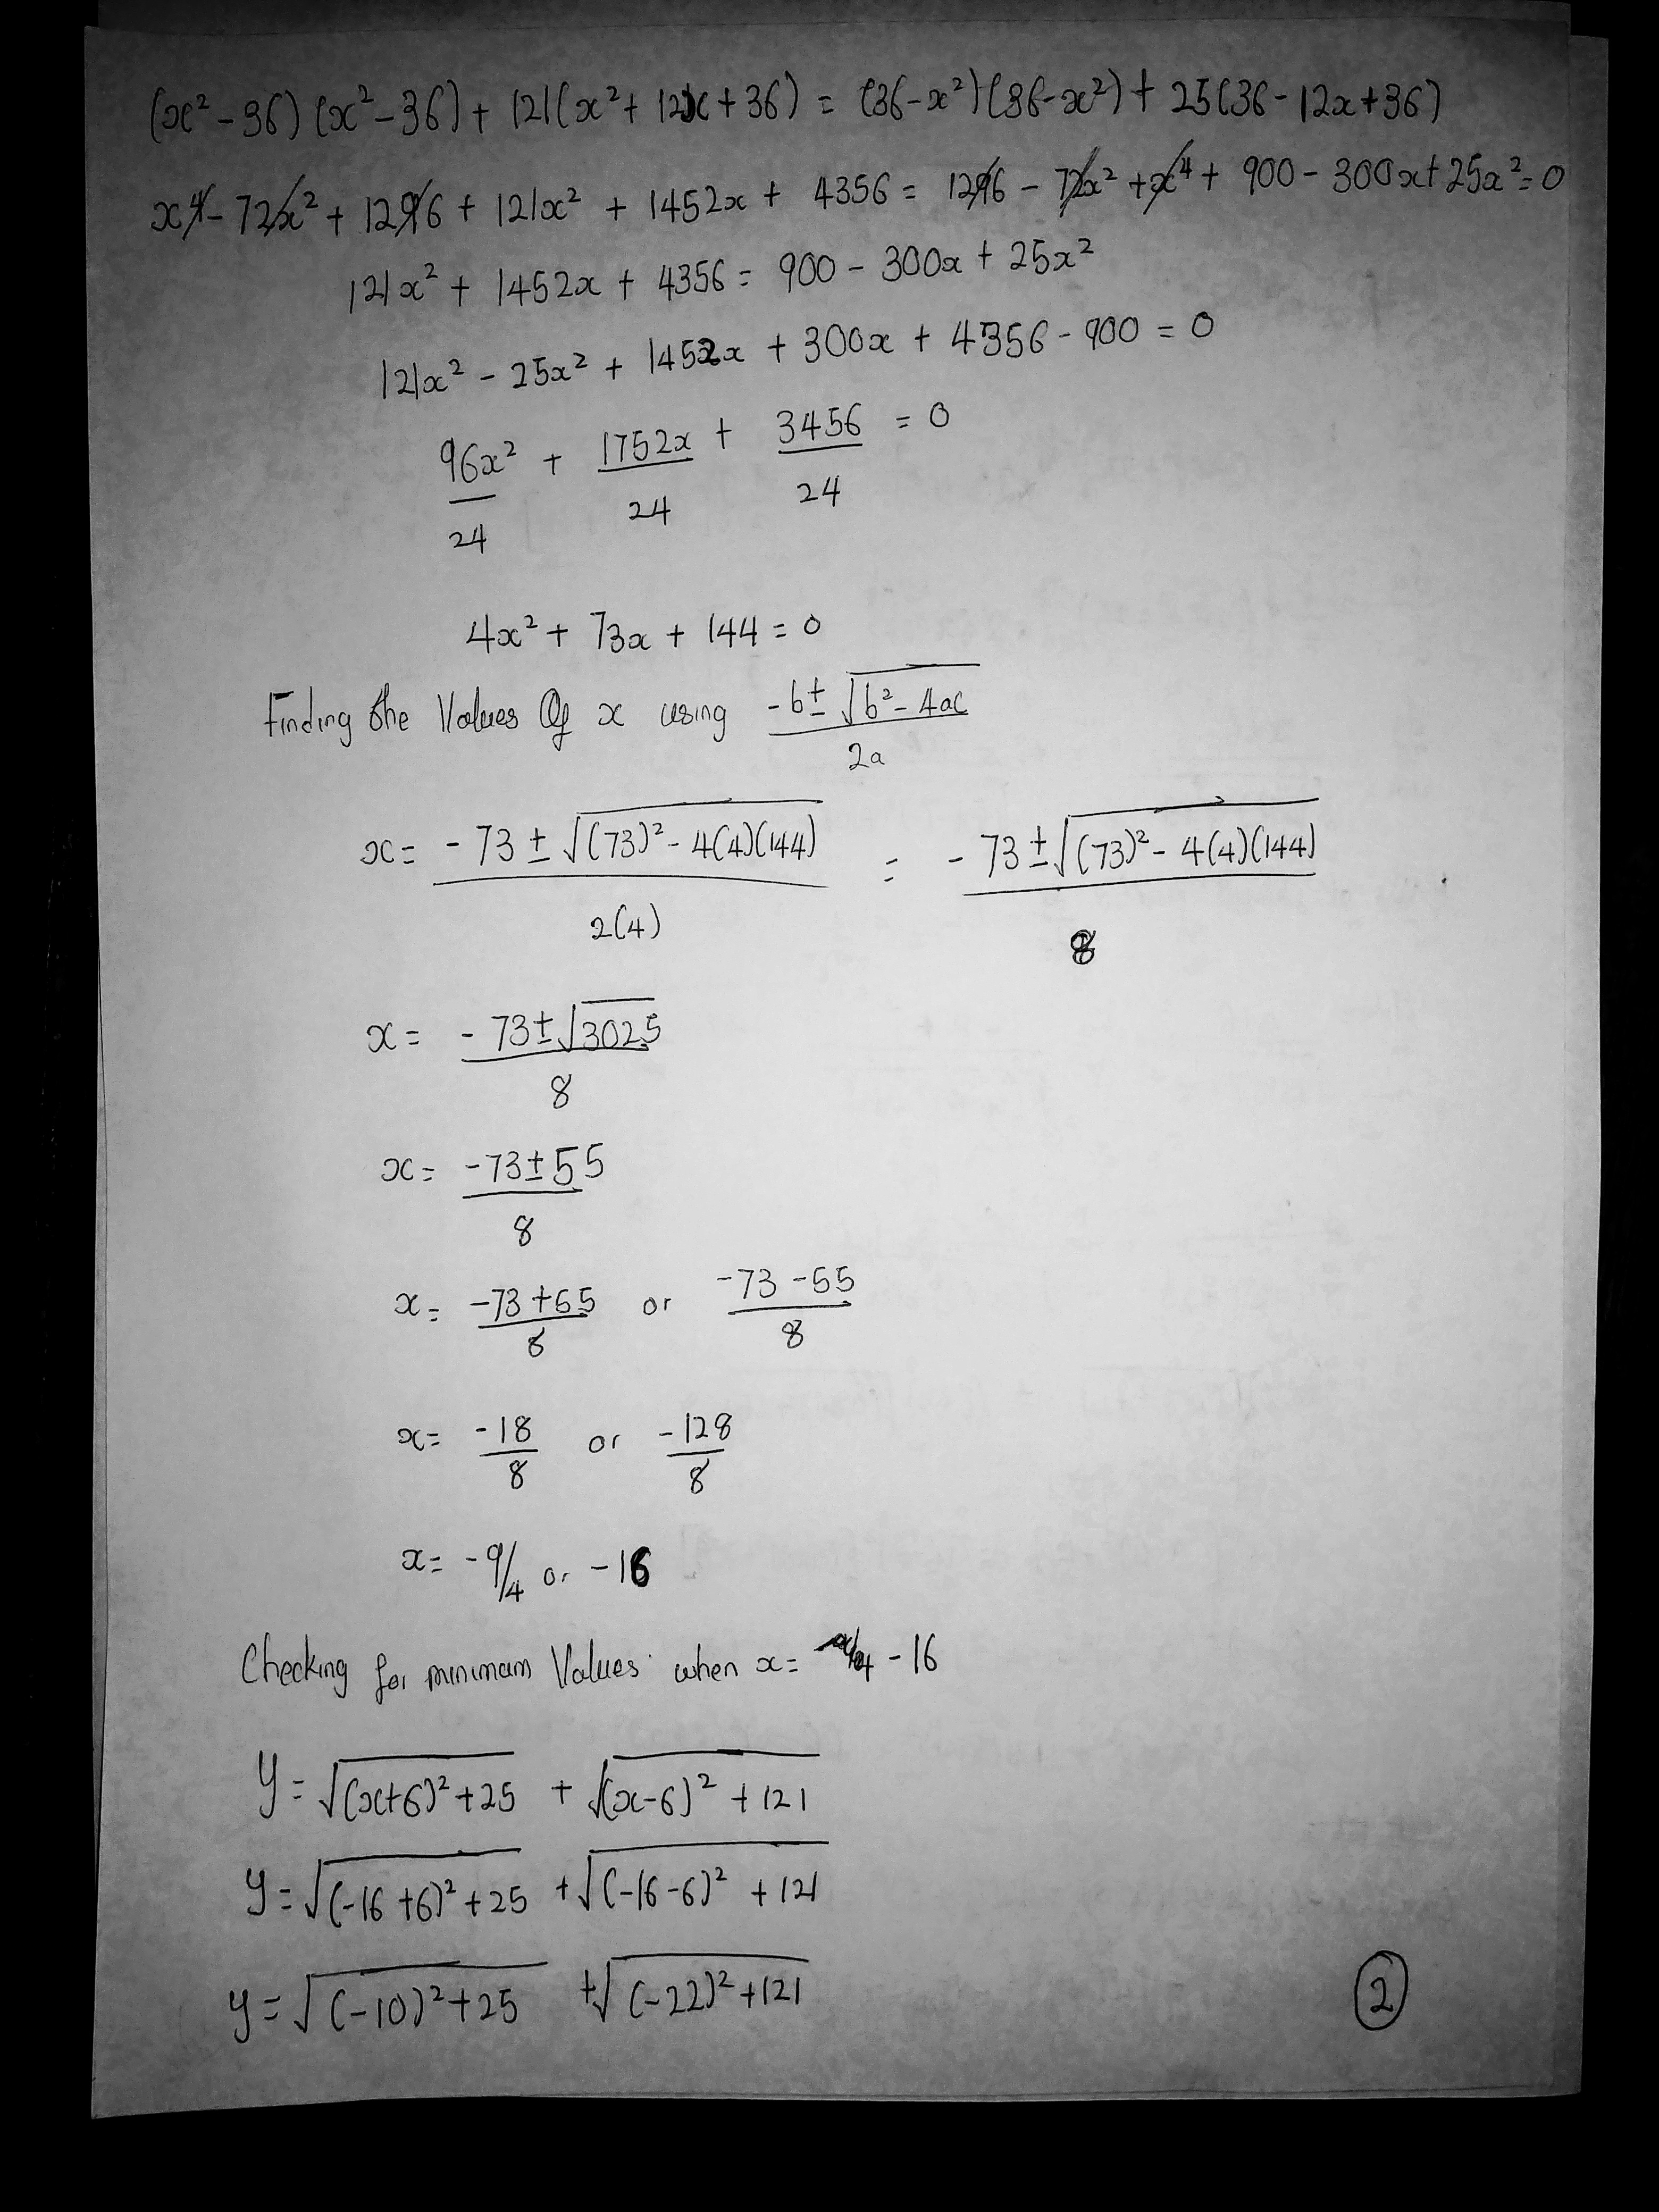 (x² - 36)(x² - 36) + 121(x² + 12x + 36) = (36 - x²)(36 - x²) + 25(36 - 12x + 36)
x⁴ - 72x² + 1296 + 121x² + 1452x + 4356 = 1296 - 72x² + x⁴ + 900 - 300x + 25x² = 0
121x² + 1452x + 4356 = 900 - 300x + 25x²
121x² - 25x² + 1452x + 300x + 4356 - 900 = 0
96x²/24 + 1752x/24 + 3456/24 = 0
4x² + 73x + 144 = 0
Finding the Values Of x using (-b ± √(b² - 4ac))/2a
x = (-73 ± √((73)² - 4(4)(144)))/2(4) = (-73 ± √((73)² - 4(4)(144)))/8
x = (-73 ± √3025)/8
x = (-73 ± 55)/8
x = (-73 + 55)/8 or (-73 - 55)/8
x = -18/8 or -128/8
x = -9/4 or -16
Checking for minimum Values when x = -16
y = √((x+6)² + 25) + √((x-6)² + 121)
y = √((-16+6)² + 25) + √((-16-6)² + 121)
y = √((-10)² + 25) + √((-22)² + 121)
2